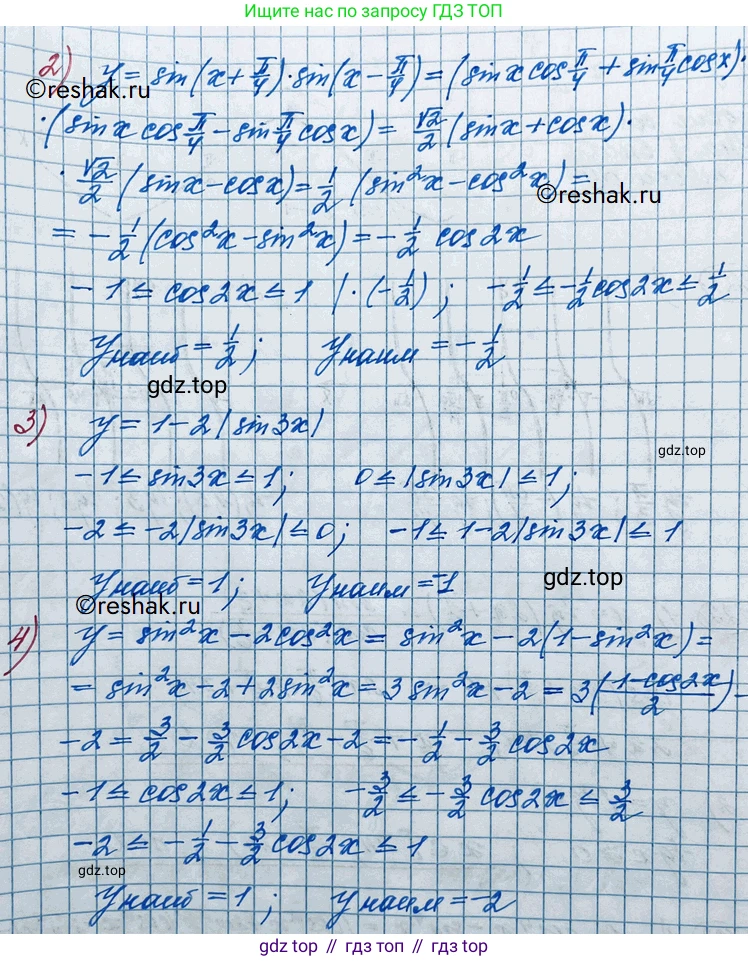 Ищите нас по запросу ГДЗ ТОП
2) y = sin(x + π/4) · sin(x − π/4) = (sin x cos π/4 + sin π/4 cos x) ·
©reshak.ru
· (sin x cos π/4 − sin π/4 cos x) = √2/2 (sin x + cos x) ·
· √2/2 (sin x − cos x) = 1/2 (sin²x − cos²x) =
©reshak.ru
= −1/2 (cos²x − sin²x) = −1/2 cos 2x
−1 ≤ cos 2x ≤ 1 | · (−1/2) ; −1/2 ≤ −1/2 cos 2x ≤ 1/2
yнаиб = 1/2 ; yнаим = −1/2
gdz.top
3) y = 1 − 2|sin 3x|
gdz.top
−1 ≤ sin 3x ≤ 1; 0 ≤ |sin 3x| ≤ 1;
−2 ≤ −2|sin 3x| ≤ 0; −1 ≤ 1 − 2|sin 3x| ≤ 1
yнаиб = 1; yнаим = −1
gdz.top
©reshak.ru
4) y = sin²x − 2cos²x = sin²x − 2(1 − sin²x) =
= sin²x − 2 + 2sin²x = 3sin²x − 2 = 3((1 − cos 2x)/2) −
−2 = 3/2 − 3/2 cos 2x − 2 = −1/2 − 3/2 cos 2x
−1 ≤ cos 2x ≤ 1; −3/2 ≤ −3/2 cos 2x ≤ 3/2
−2 ≤ −1/2 − 3/2 cos 2x ≤ 1
gdz.top
yнаиб = 1 ; yнаим = −2
gdz top // гдз топ // gdz.top